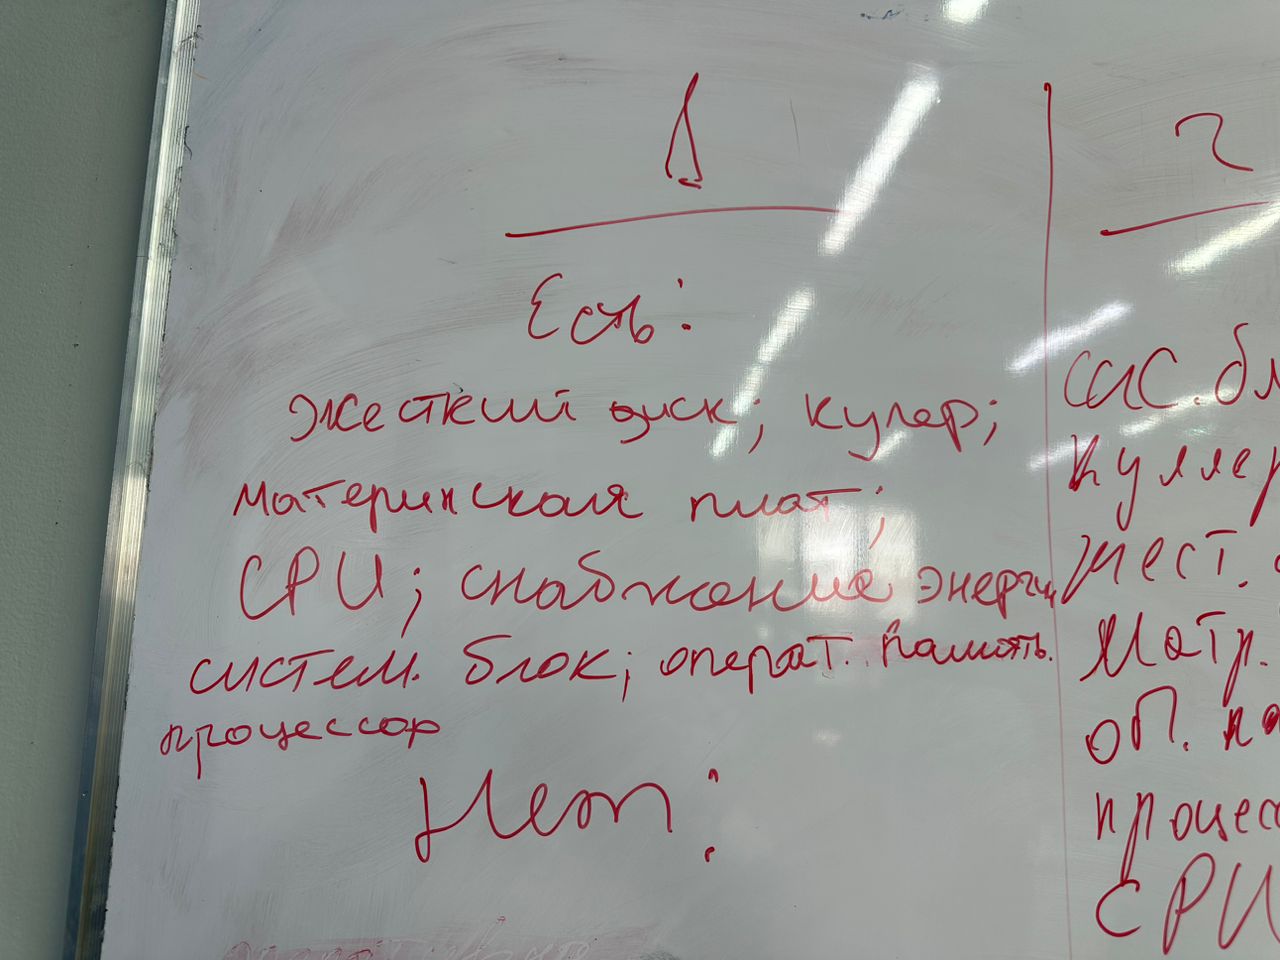 1
Есть:
жесткий диск; кулер;
материнская плат;
CPU; снабжение энерги
систем. блок; операт. память.
процессор
Нет:
2
сис. бл
куллер
жест.
Матр.
оп. па
процесс
CPU